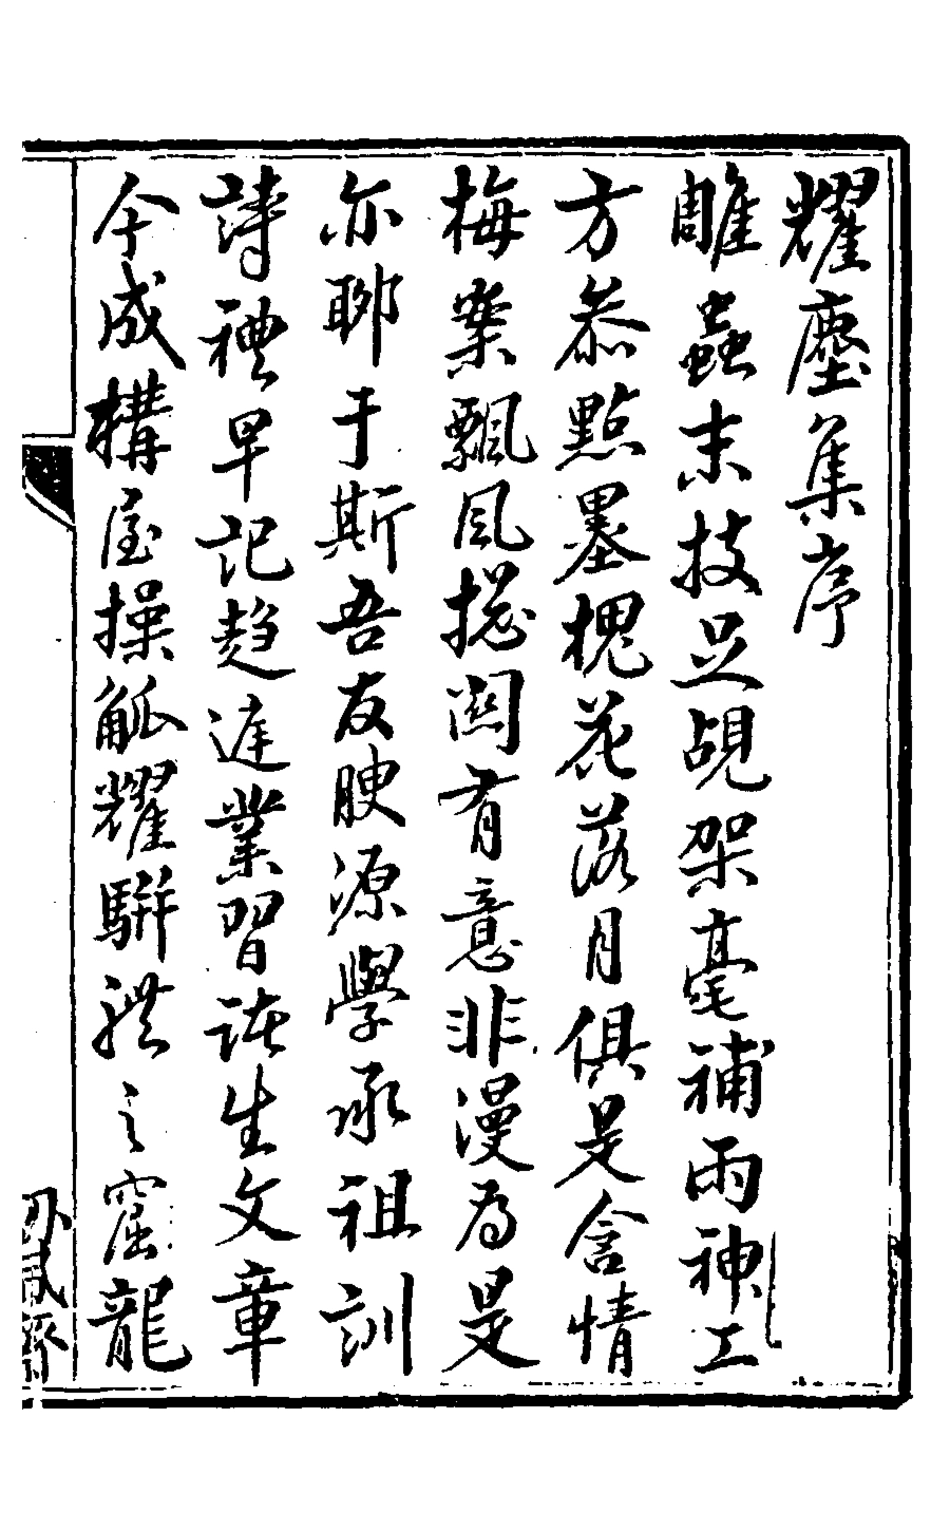 耀塵集序
雕蟲末技足覘架毫補雨神工
方忝點墨槐花落月俱是含情
梅案飄風摠關有意非漫為是
亦聊于斯吾友腴源學承祖訓
詩禮早記趨進業習誌生文章
今成構屋操觚耀駢體之窟龍